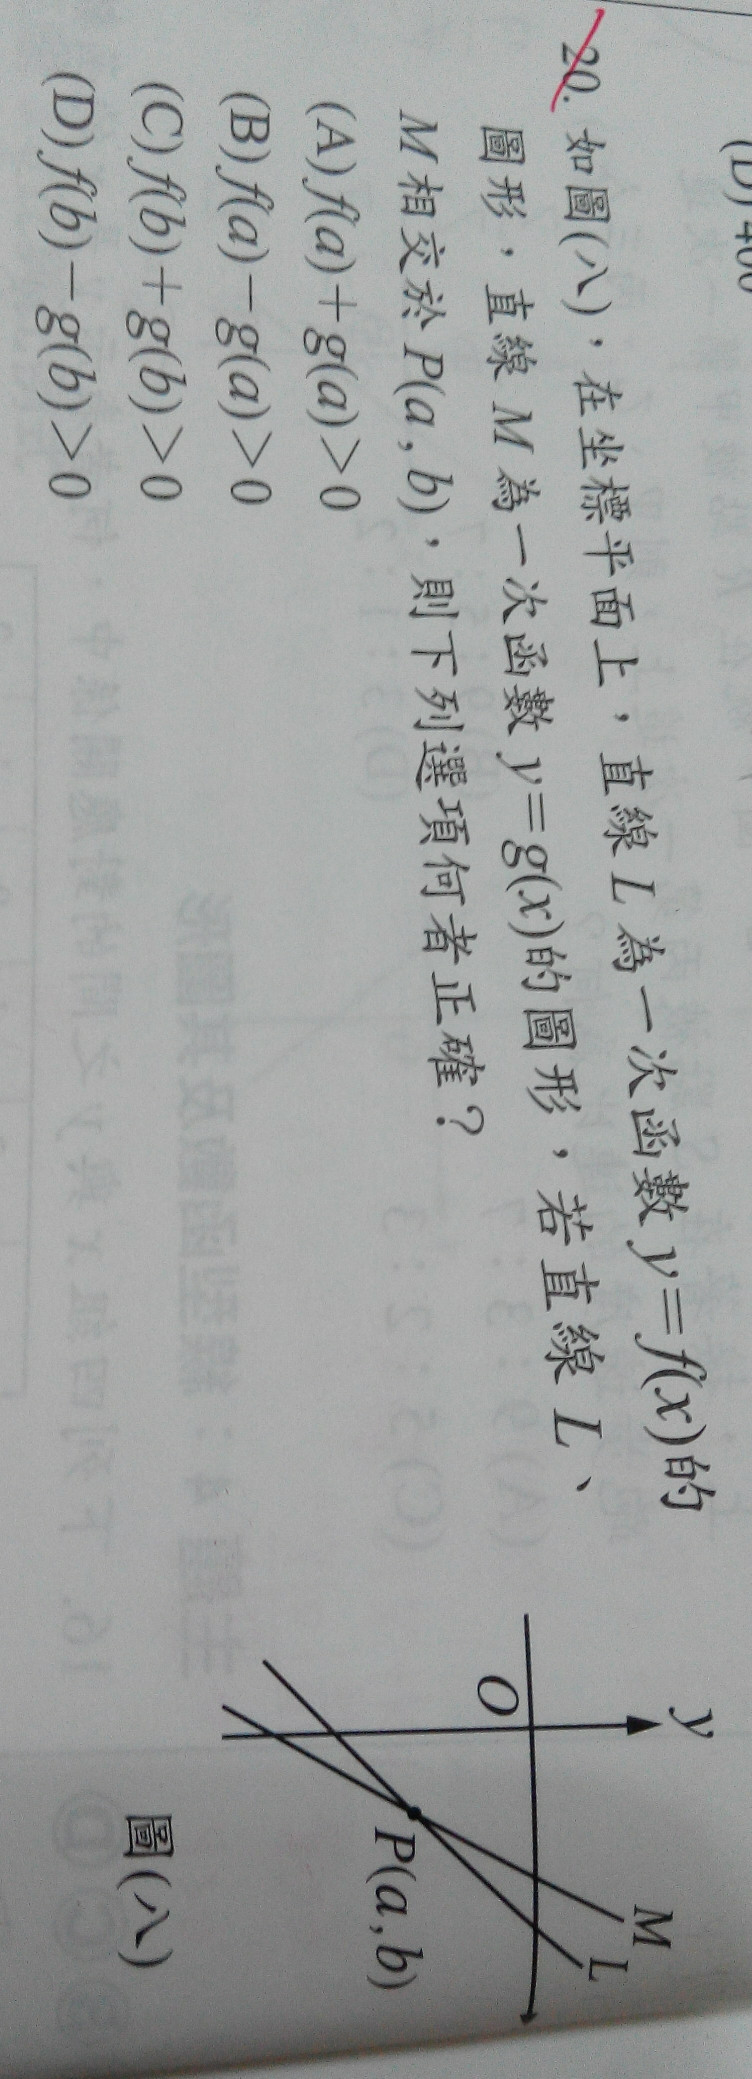 (D) 400
20. 如圖(八)，在坐標平面上，直線 L 為一次函數 y=f(x)的
圖形，直線 M 為一次函數 y=g(x)的圖形，若直線 L、
M 相交於 P(a , b)，則下列選項何者正確？
(A) f(a)+g(a)>0
(B) f(a)−g(a)>0
(C) f(b)+g(b)>0
(D) f(b)−g(b)>0
y
O
M
L
P(a,b)
圖(八)